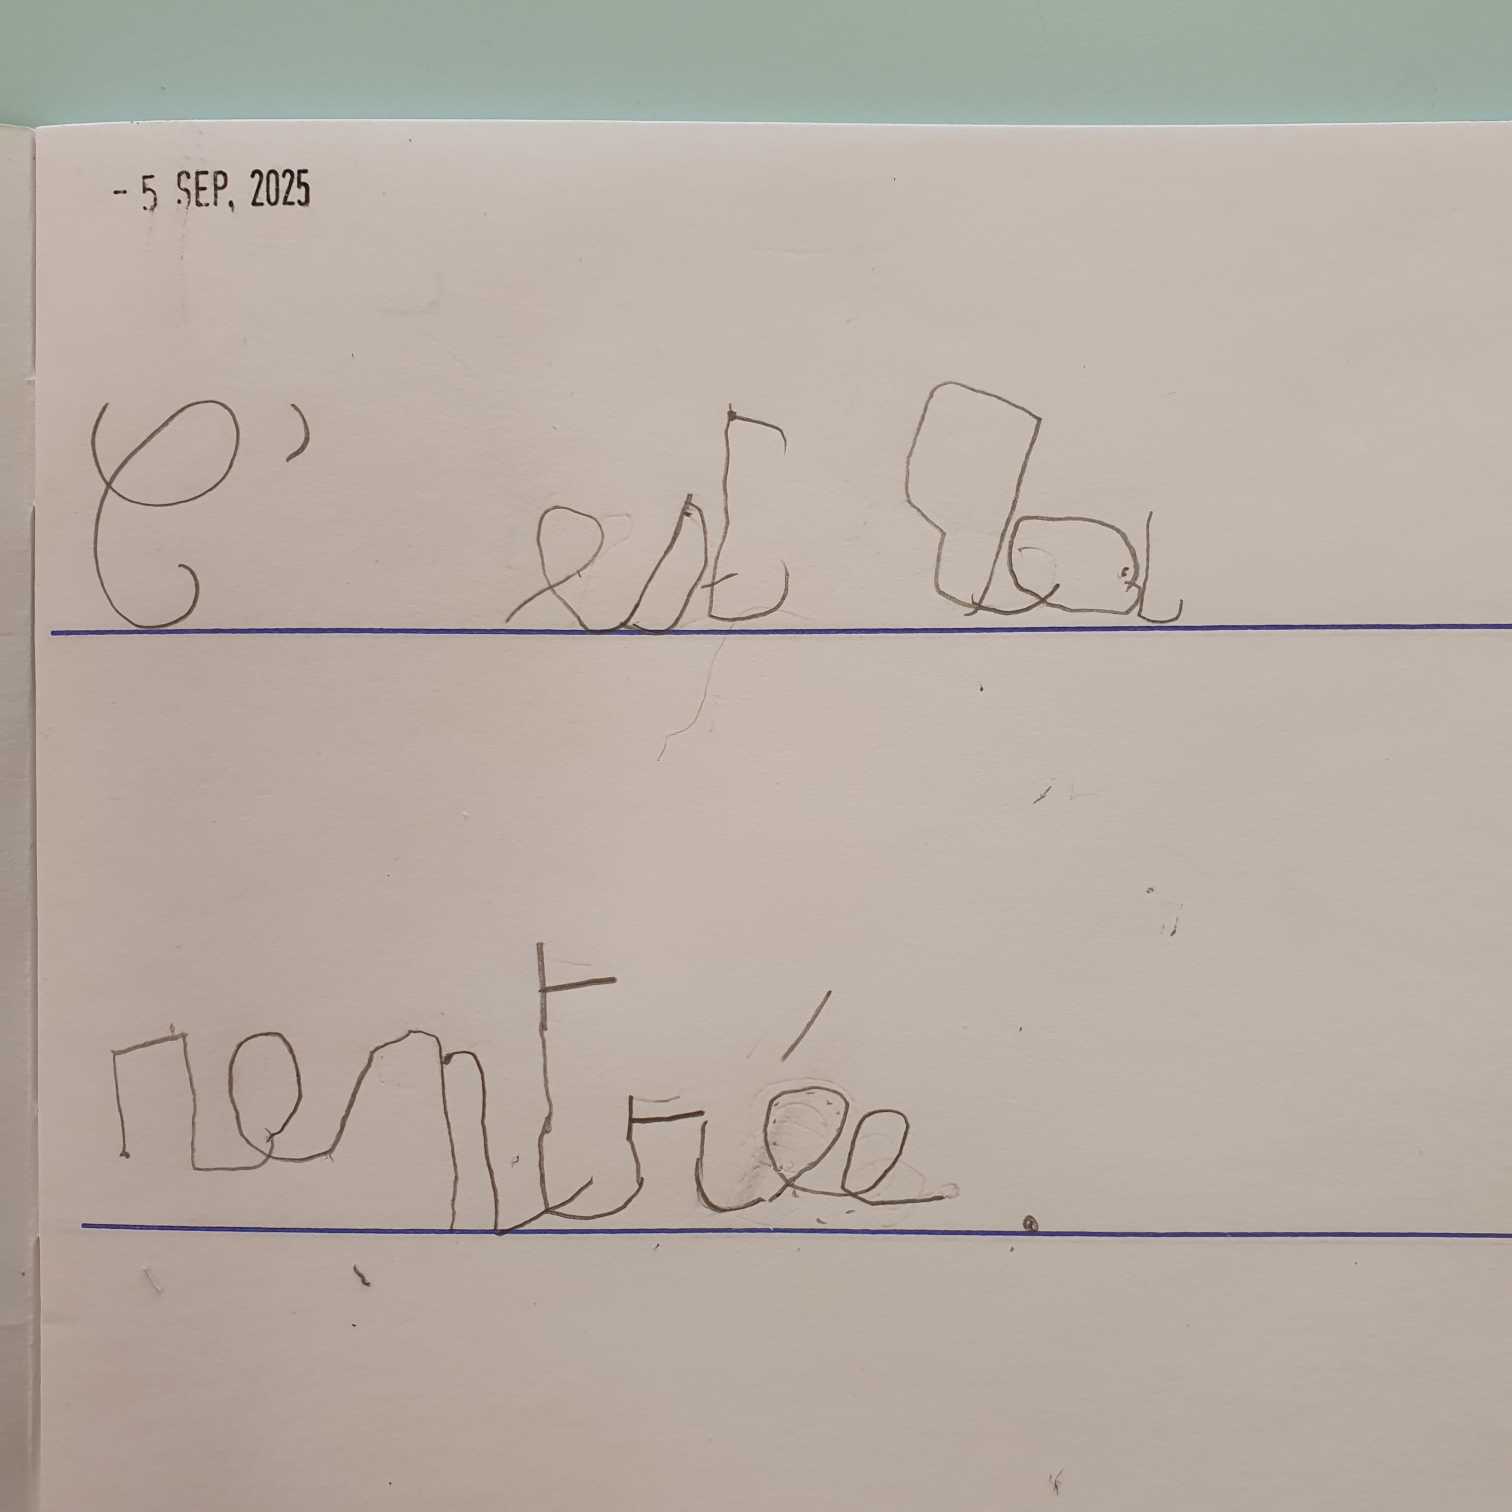 - 5 SEP. 2025
C' est la
rentrée.